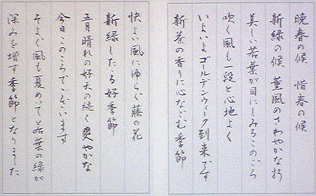 晩春の候　惜春の候
新緑の候　薫風のさわやかな折
美しい若葉が目にしみるこのごろ
吹く風も一段と心地よく
いよいよゴールデンウィーク到来です
新茶の香りに心なごむ季節
快よい風にゆらぐ藤の花
新緑したたる好季節
五月晴れの好天の続く爽やかな
今日このころでございます
そよぐ風も夏めいて若葉の緑が
深みを増す季節となりました